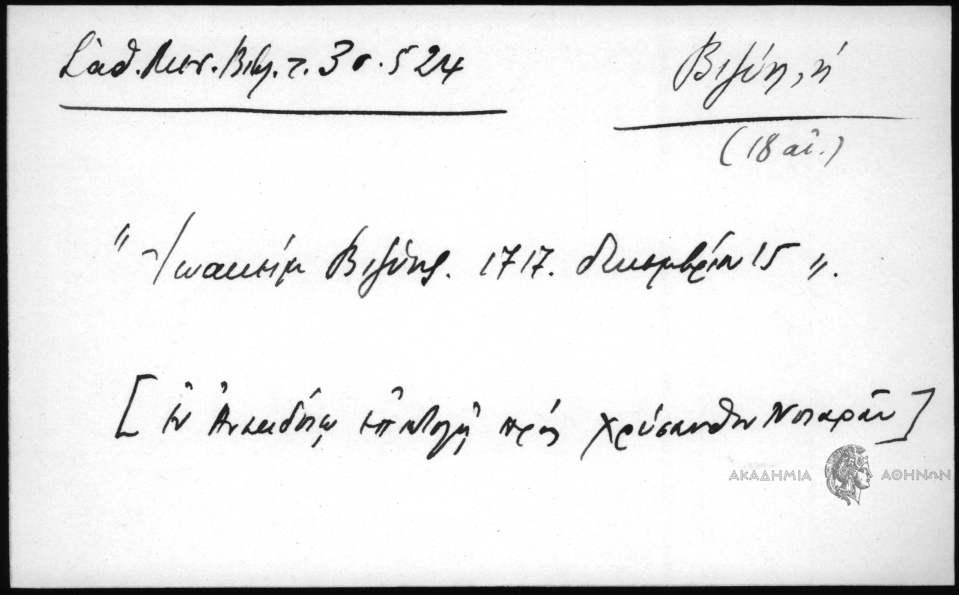 Σάθ. Μεσ. Βιβ. τ. 3 σ. 524
Βιζύη, ἡ
(18 αἰ.)
" Ἰωακεὶμ Βιζύης. 1717. δεκεμβρίου 15 ".
[ ἐν Ἀνεκδότῳ ἐπιστολῇ πρὸς Χρύσανθον Νοταρᾶν ]
ΑΚΑΔΗΜΙΑ ΑΘΗΝΩΝ